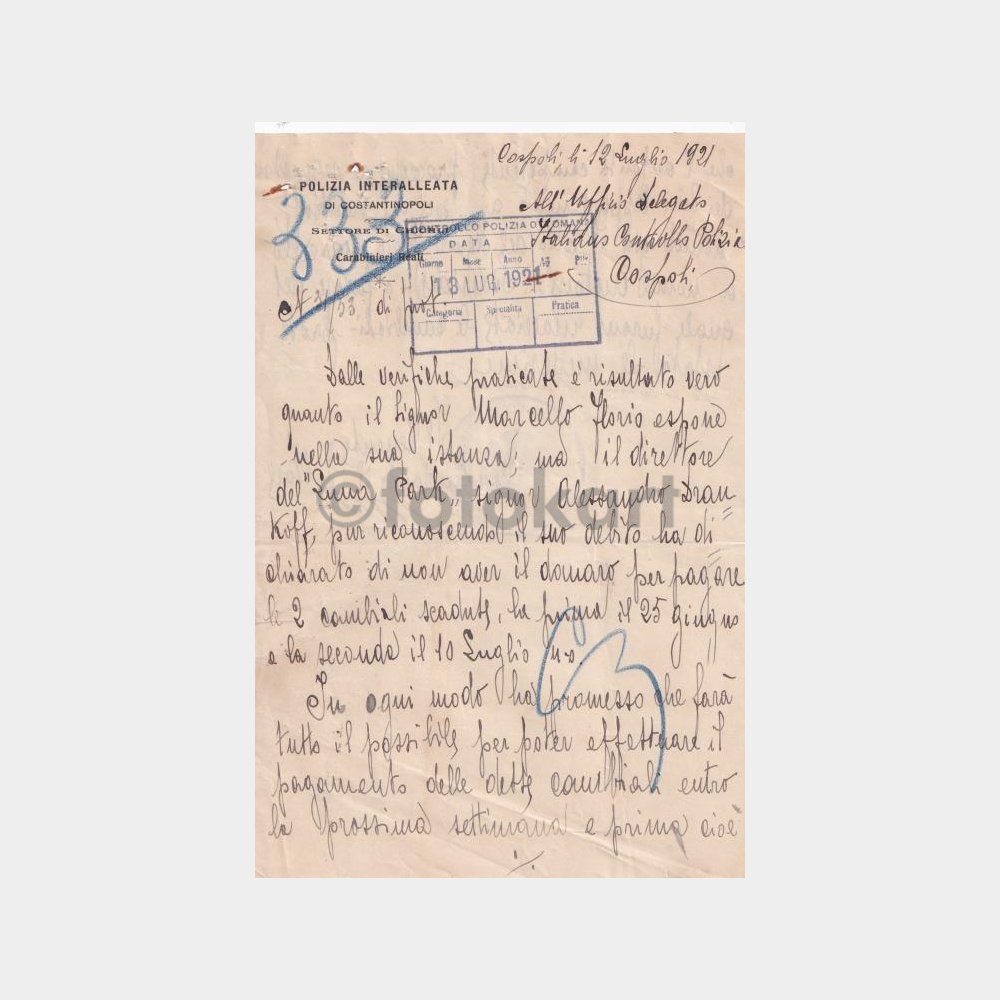 Cospoli, li 12 Luglio 1921
POLIZIA INTERALLEATA
DI COSTANTINOPOLI
SETTORE DI
Carabinieri Reali
N. 21/53 di prot.
333
All' Ufficio Delegato
Italiano Controllo Polizia
Cospoli,
CONTROLLO POLIZIA OTTOMANA
DATA
Giorno Mese Anno
18 LUG. 1921
Categoria Specialità Pratica
Dalle verifiche praticate è risultato vero
quanto il Signor Marcello Florio espone
nella sua istanza; ma il direttore
del "Luna Park" signor Alessandro Dran=
Koff, pur riconoscendo il suo debito ha di=
chiarato di non aver il danaro per pagare
le 2 cambiali scadute, la prima il 25 giugno
e la seconda il 10 Luglio
In ogni modo ha promesso che farà
tutto il possibile per poter effettuare il
pagamento delle dette cambiali entro
la prossima settimana e prima cioè
./.
©fotokart